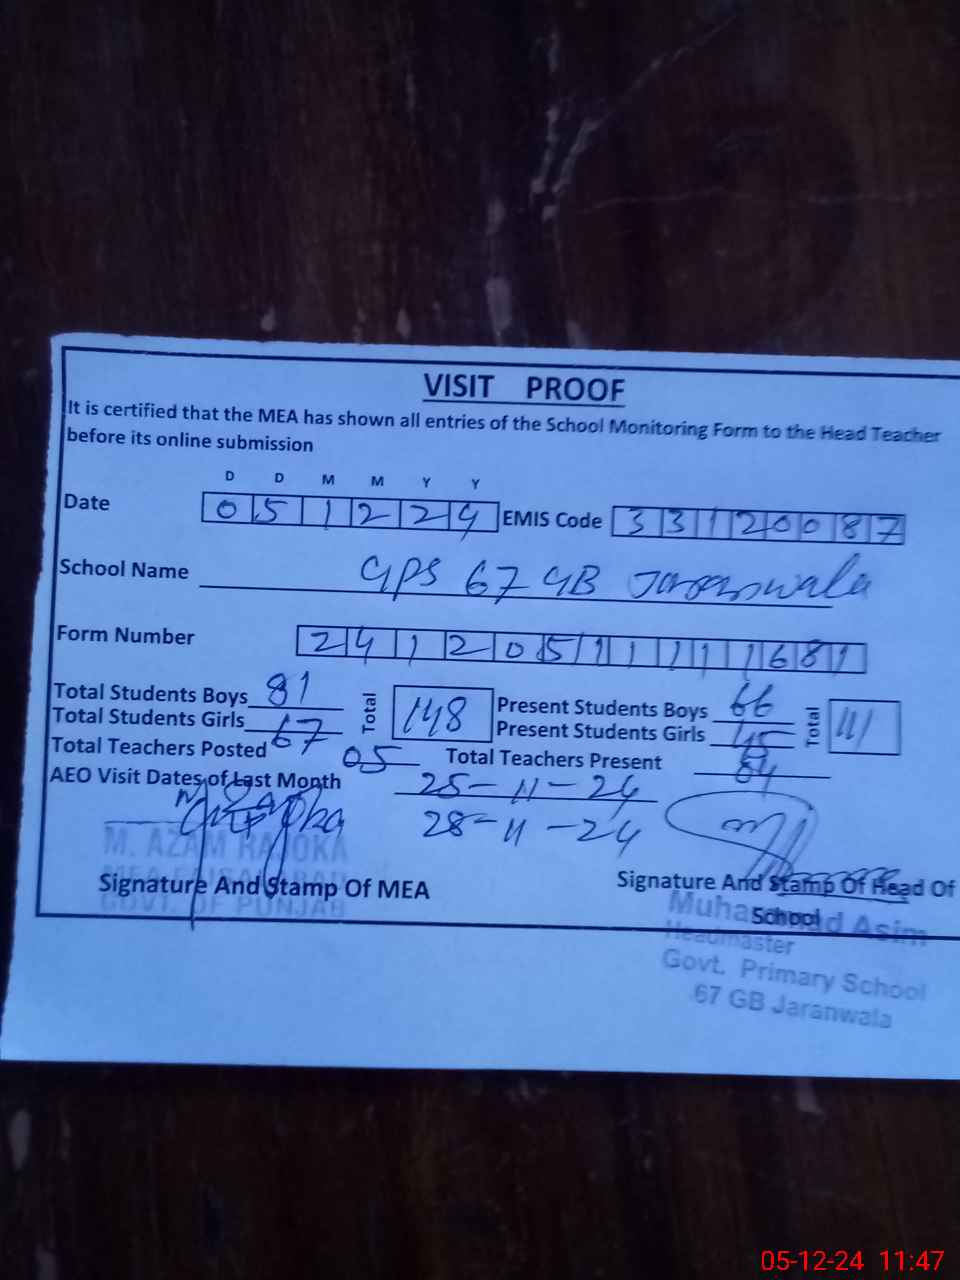 VISIT PROOF
It is certified that the MEA has shown all entries of the School Monitoring Form to the Head Teacher
before its online submission
D D M M Y Y
Date 0 5 1 2 2 4 EMIS Code 3 3 1 2 0 0 8 7
School Name GPS 67 GB Jaranwala
Form Number 2 4 1 2 0 5 1 1 1 1 6 8 1
Total Students Boys 81 Total 148 Present Students Boys 66 Total 111
Total Students Girls 67 Present Students Girls 45
Total Teachers Posted 05 Total Teachers Present 04
AEO Visit Dates of Last Month 25-11-24
28-11-24
M. AZAM RAJOKA
GOVT. OF PUNJAB
Signature And Stamp Of MEA
Signature And Stamp Of Head Of
School
Muhammad Asim
Headmaster
Govt. Primary School
67 GB Jaranwala
05-12-24 11:47